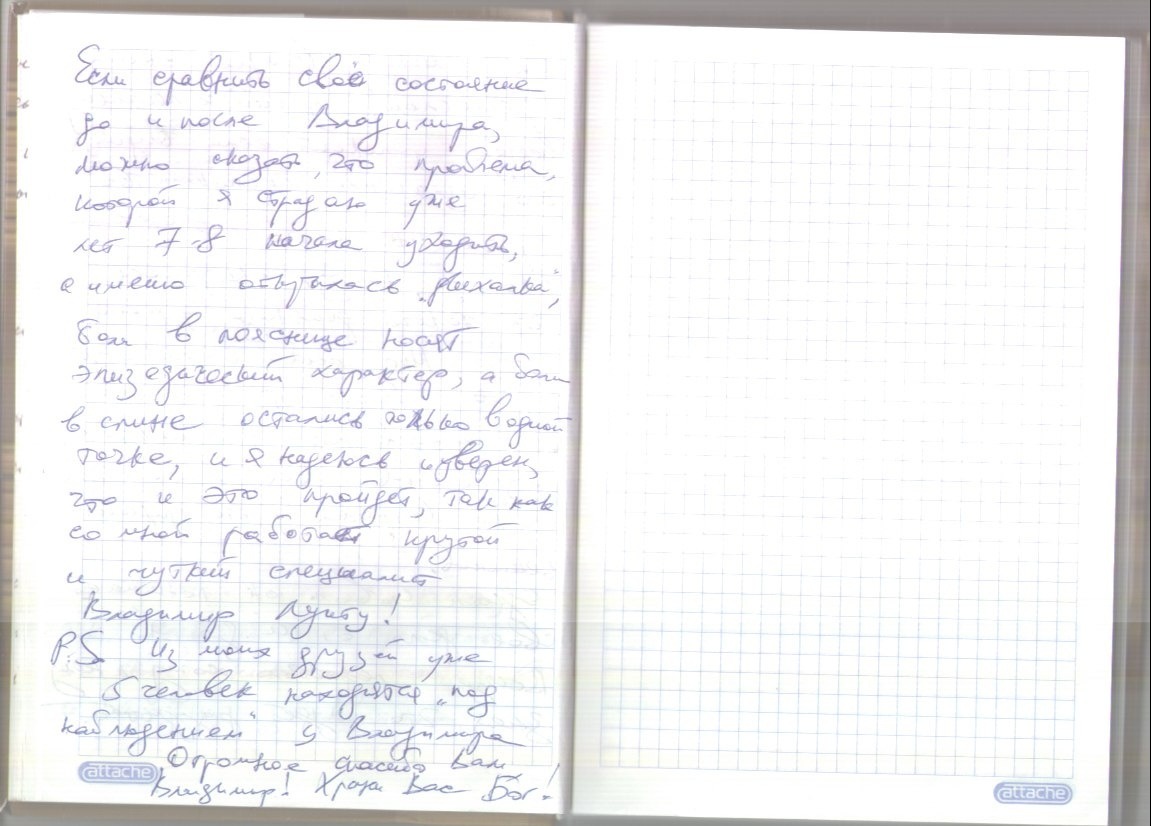 Если сравнить своё состояние
до и после Владимира,
можно сказать, что проблема,
которой я страдаю уже
лет 7-8 начала уходить,
а именно "дыхалка",
боли в пояснице носят
эпизодический характер, а боли
в спине остались только в одной
точке, и я надеюсь и уверен,
что и это пройдёт, так как
со мной работает крутой
и чуткий специалист
Владимир !
P.S. Из моих друзей уже
5 человек находятся „под
наблюдением" у Владимира
Огромное спасибо Вам
Владимир! Храни Вас Бог!
attache
attache